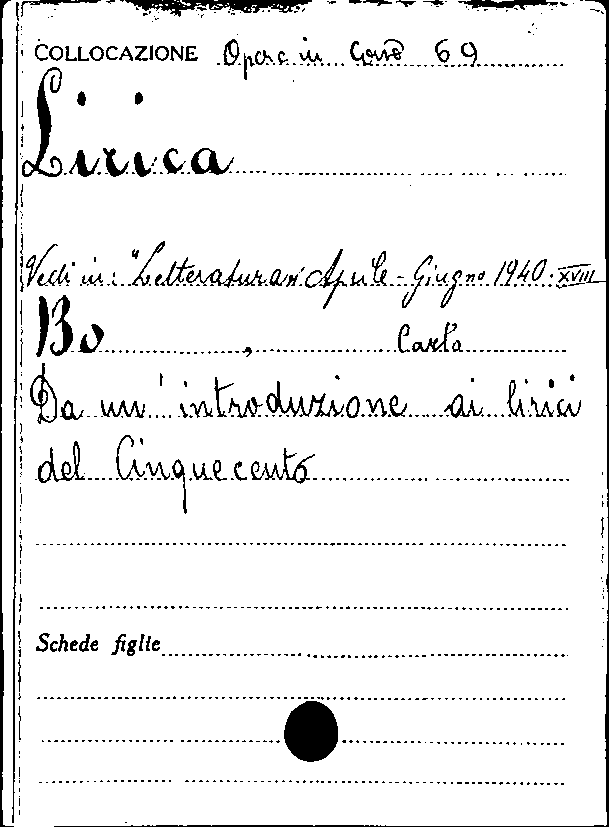 COLLOCAZIONE Opera in Corso 69
Lirica
Vedi in: "Letteratura" Aprile - Giugno 1940. XVIII
Bo , Carlo
Da un' introduzione ai lirici
del Cinquecento
Schede figlie